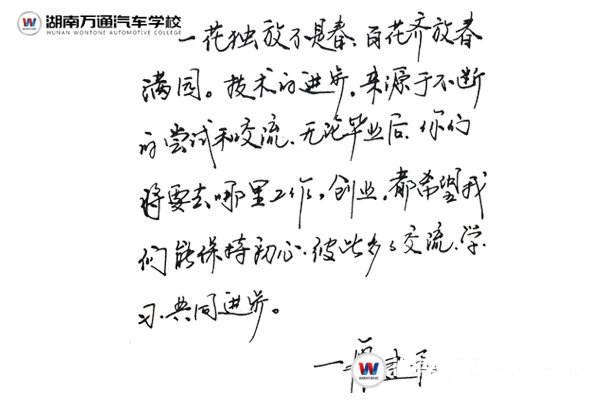 湖南万通汽车学校
HUNAN WONTONE AUTOMOTIVE COLLEGE
一花独放不是春、百花齐放春
满园。技术的进步，来源于不断
的尝试和交流、无论毕业后、你们
将要去哪里工作，创业，都希望我
们能保持初心、彼此多多交流、学
习、共同进步。
WONTONE